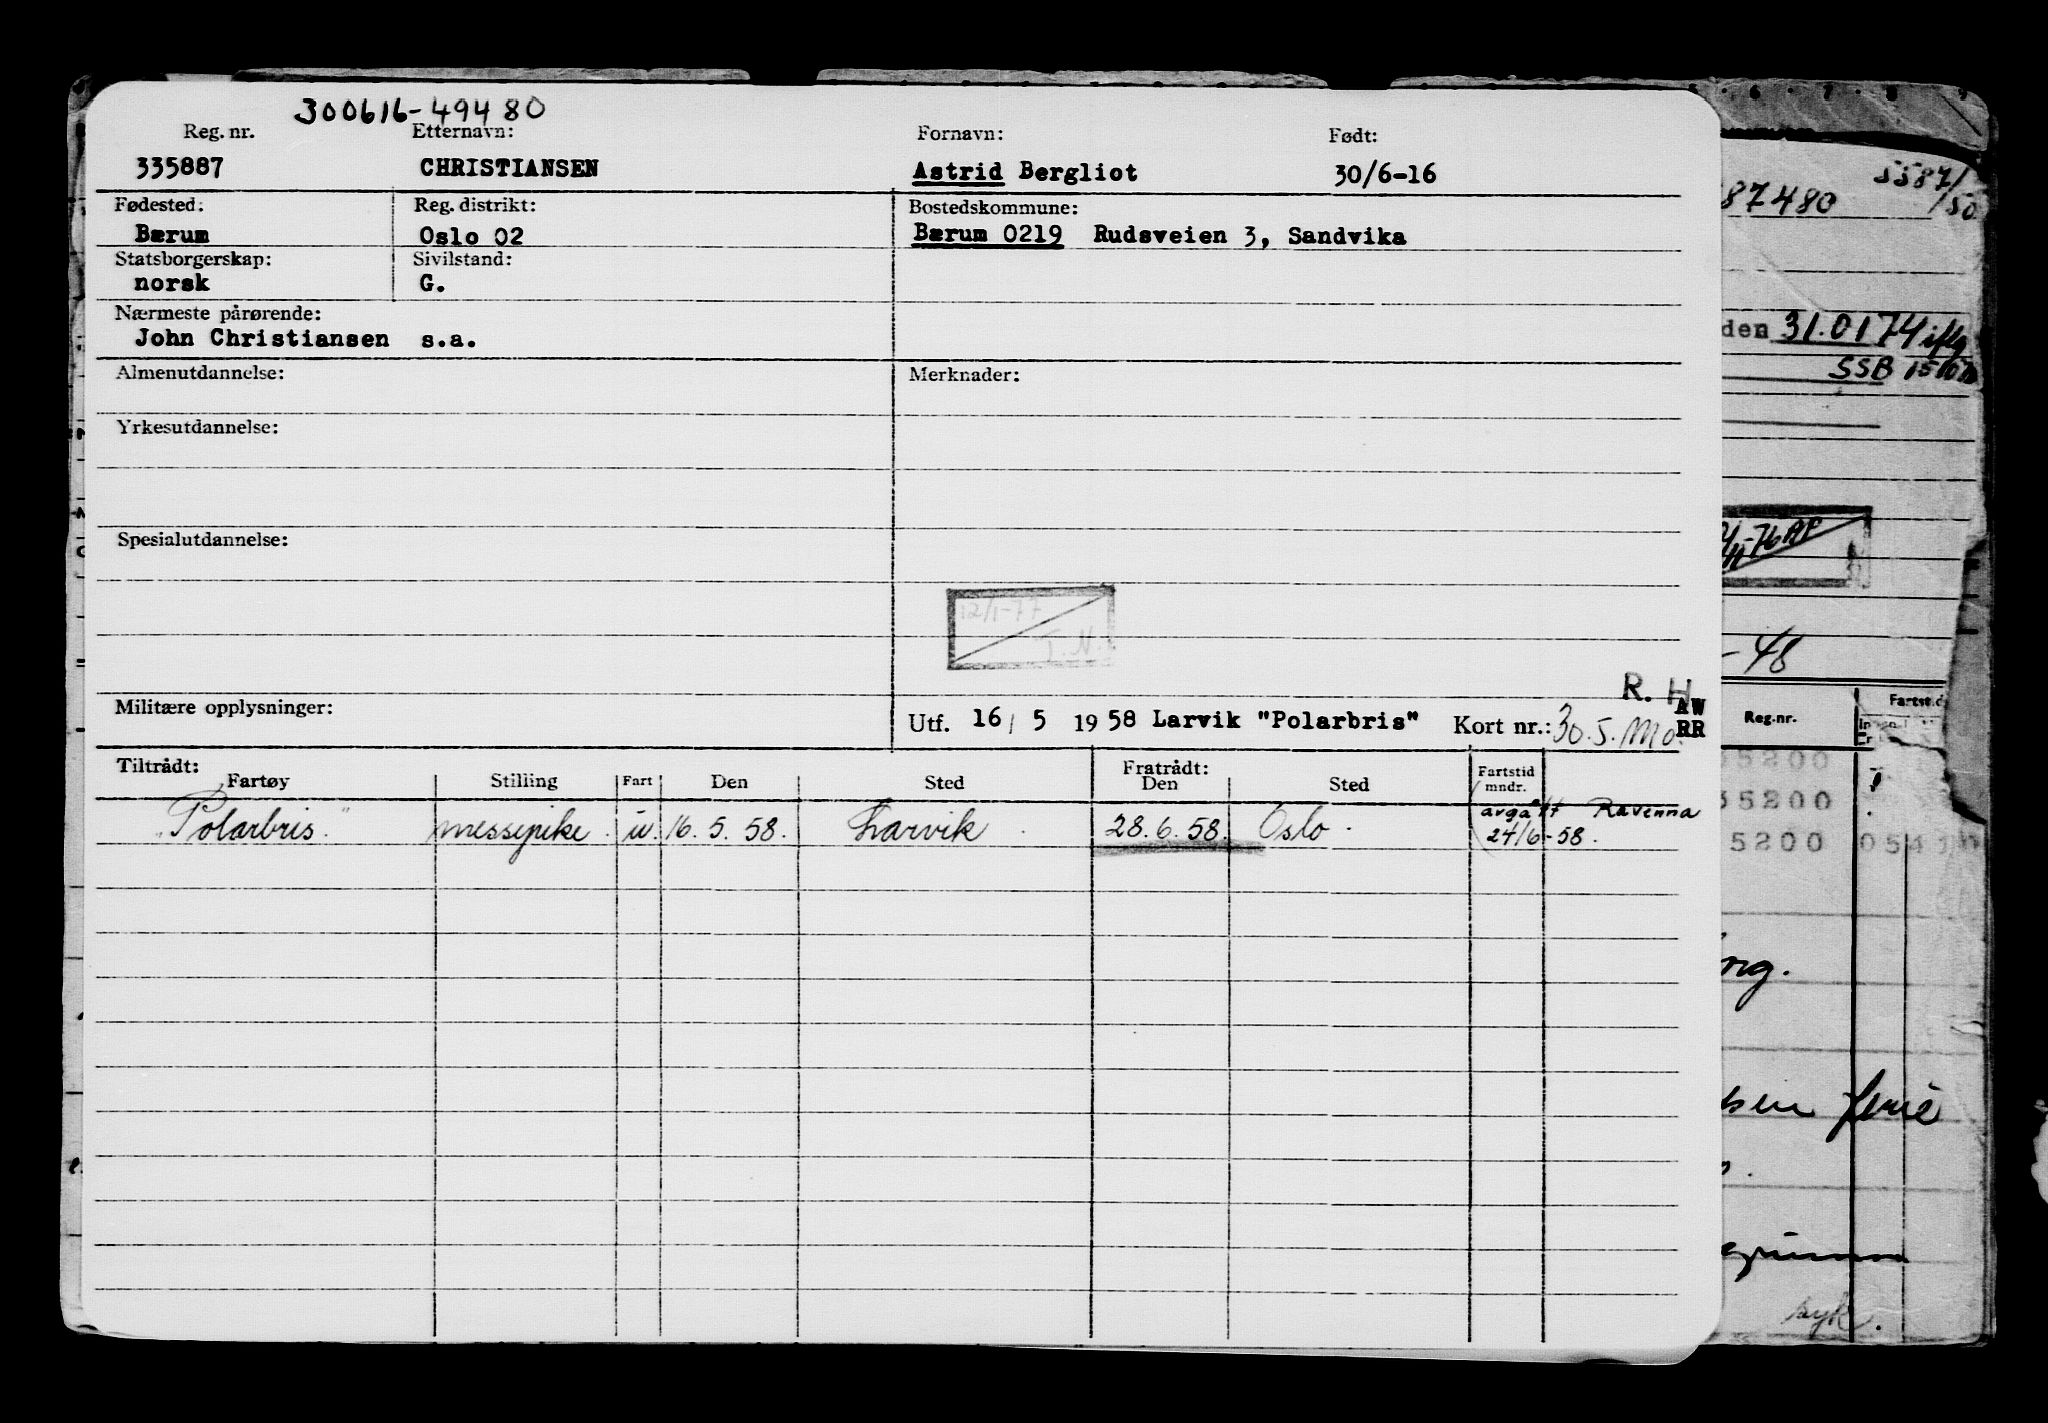 300616-49480
Reg. nr. Etternavn: Fornavn: Født:
335887 CHRISTIANSEN Astrid Bergliot 30/6-16
Fødested: Reg. distrikt: Bostedskommune:
Bærum Oslo 02 Bærum 0219 Rudsveien 3, Sandvika
Statsborgerskap: Sivilstand:
norsk G.
Nærmeste pårørende:
John Christiansen s.a.
Almenutdannelse: Merknader:
Yrkesutdannelse:
Spesialutdannelse:
12/1-77
T.N.
R. H
AW
Militære opplysninger: Utf. 16/5 1958 Larvik "Polarbris" Kort nr.: 30.5. Mo. RR
Tiltrådt: Fratrådt: Fartstid
Fartøy Stilling Fart Den Sted Den Sted mndr.
"Polarbris." messepike. u. 16.5.58. Larvik. 28.6.58. Oslo. avgått Ravenna
24/6-58.
5587/
87480 /50
den 31.0174 iflg
SSB
-76 AF
-48
Reg.nr. Fartstid
35200
35200
5200
ong.
sen ferie
syk.